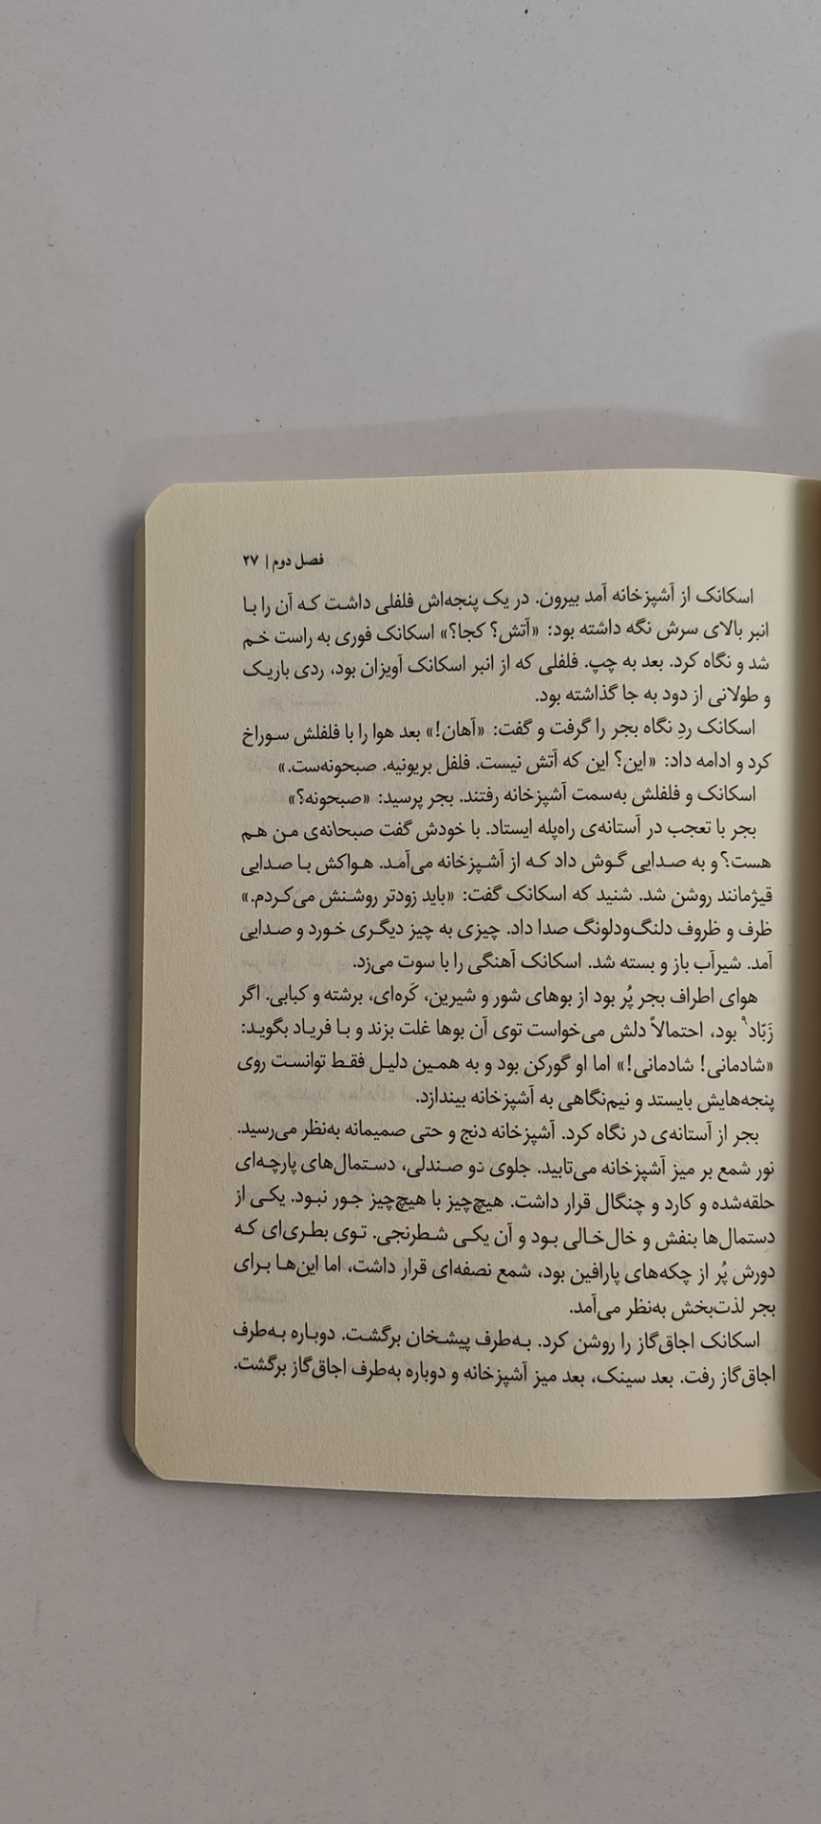 فصل دوم | ۲۷
اسکانک از آشپزخانه آمد بیرون. در یک پنجه‌اش فلفلی داشت که آن را با
انبر بالای سرش نگه داشته بود: «آتش؟ کجا؟» اسکانک فوری به راست خم
شد و نگاه کرد. بعد به چپ. فلفلی که از انبر اسکانک آویزان بود، ردی باریک
و طولانی از دود به جا گذاشته بود.
اسکانک ردِ نگاه بجر را گرفت و گفت: «آهان!» بعد هوا را با فلفلش سوراخ
کرد و ادامه داد: «این؟ این که آتش نیست. فلفل بریونیه. صبحونه‌ست.»
اسکانک و فلفلش به‌سمت آشپزخانه رفتند. بجر پرسید: «صبحونه؟»
بجر با تعجب در آستانه‌ی راه‌پله ایستاد. با خودش گفت صبحانه‌ی من هم
هست؟ و به صدایی گوش داد که از آشپزخانه می‌آمد. هواکش با صدایی
قیژمانند روشن شد. شنید که اسکانک گفت: «باید زودتر روشنش می‌کردم.»
ظرف و ظروف دلنگ‌ودلونگ صدا داد. چیزی به چیز دیگری خورد و صدایی
آمد. شیرآب باز و بسته شد. اسکانک آهنگی را با سوت می‌زد.
هوای اطراف بجر پُر بود از بوهای شور و شیرین، کَره‌ای، برشته و کبابی. اگر
زَبّاد۹ بود، احتمالاً دلش می‌خواست توی آن بوها غلت بزند و با فریاد بگوید:
«شادمانی! شادمانی!» اما او گورکن بود و به همین دلیل فقط توانست روی
پنجه‌هایش بایستد و نیم‌نگاهی به آشپزخانه بیندازد.
بجر از آستانه‌ی در نگاه کرد. آشپزخانه دنج و حتی صمیمانه به‌نظر می‌رسید.
نور شمع بر میز آشپزخانه می‌تابید. جلوی دو صندلی، دستمال‌های پارچه‌ای
حلقه‌شده و کارد و چنگال قرار داشت. هیچ‌چیز با هیچ‌چیز جور نبود. یکی از
دستمال‌ها بنفش و خال‌خالی بود و آن یکی شطرنجی. توی بطری‌ای که
دورش پُر از چکه‌های پارافین بود، شمع نصفه‌ای قرار داشت، اما این‌ها برای
بجر لذت‌بخش به‌نظر می‌آمد.
اسکانک اجاق‌گاز را روشن کرد. به‌طرف پیشخان برگشت. دوباره به‌طرف
اجاق‌گاز رفت. بعد سینک، بعد میز آشپزخانه و دوباره به‌طرف اجاق‌گاز برگشت.